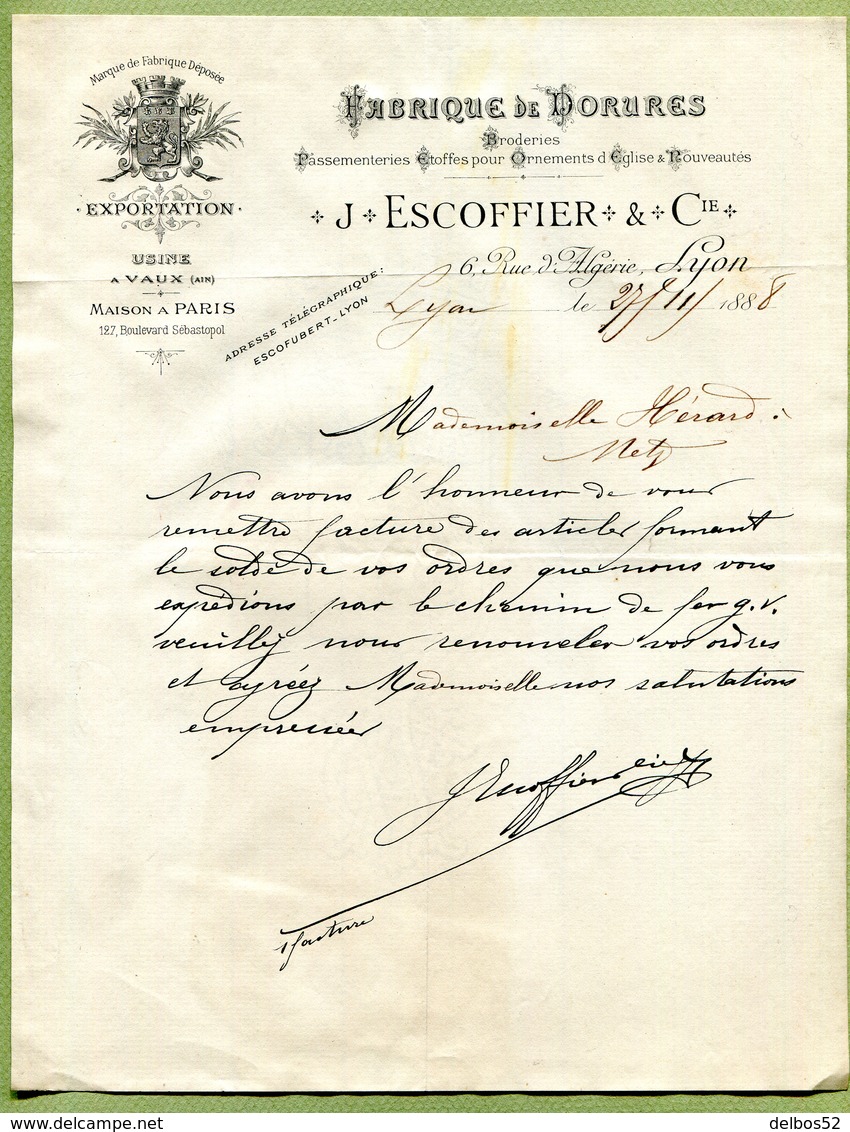 Marque de Fabrique Déposée
EXPORTATION
USINE
A VAUX (AIN)
MAISON A PARIS
127, Boulevard Sébastopol
FABRIQUE DE DORURES
Broderies
Passementeries Etoffes pour Ornements d'Eglise & Nouveautés
J. ESCOFFIER & CIE
6, Rue d'Algérie, Lyon
ADRESSE TÉLÉGRAPHIQUE:
ESCOFUBERT_LYON
Lyon le 27/11/1888
Mademoiselle Hérard.
Metz
Nous avons l'honneur de vous
remettre facture des articles formant
le solde de vos ordres que nous vous
expédions par le chemin de fer g.v.
veuillez nous renouveler vos ordres
et agréez Mademoiselle nos salutations
empressées
J Escoffier cie
1 facture
www.delcampe.net
delbos52